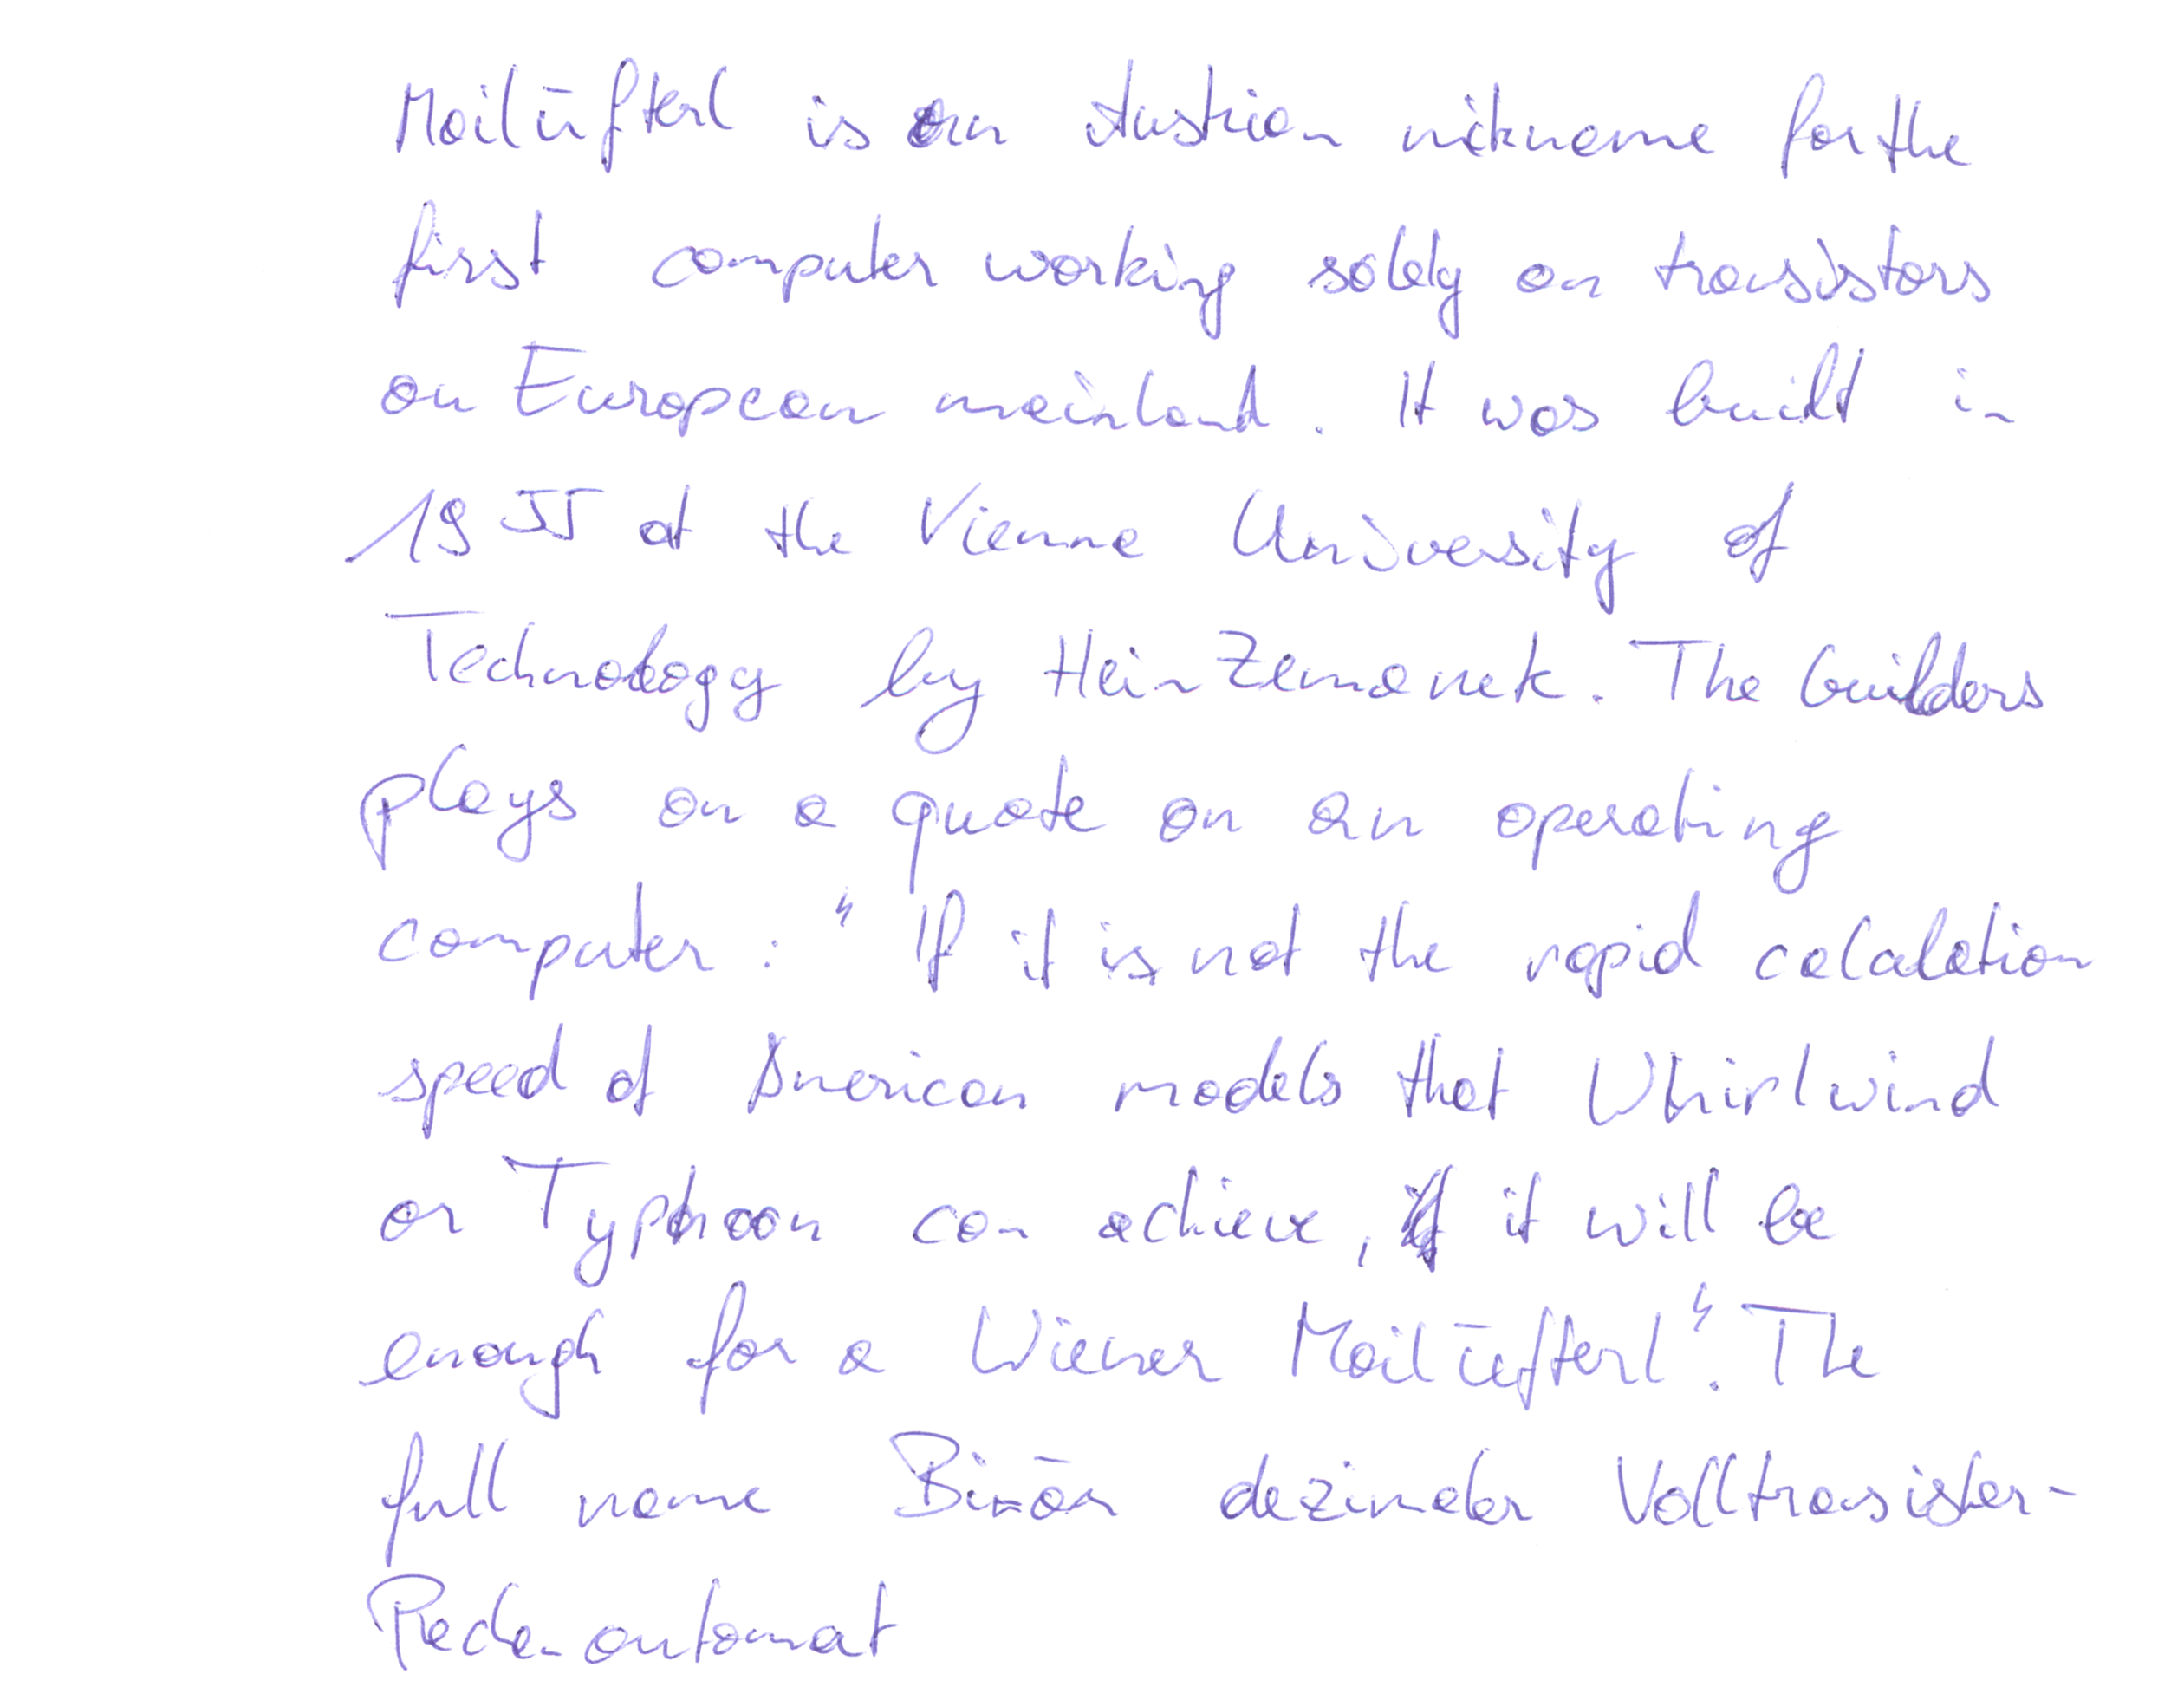 Mailüfterl is an Austrian nickname for the
first computer working solely on transistors
on European mainland. It was build in
1955 at the Vienna University of
Technology by Hein Zemanek. The builders
plays on a quote on an operating
computer: "If it is not the rapid calculation
speed of American models that Whirlwind
or Typhoon can achieve, it will be
enough for a Wiener Mailüfterl". The
full name Binär dezimaler Volltransistor-
Rechenautomat